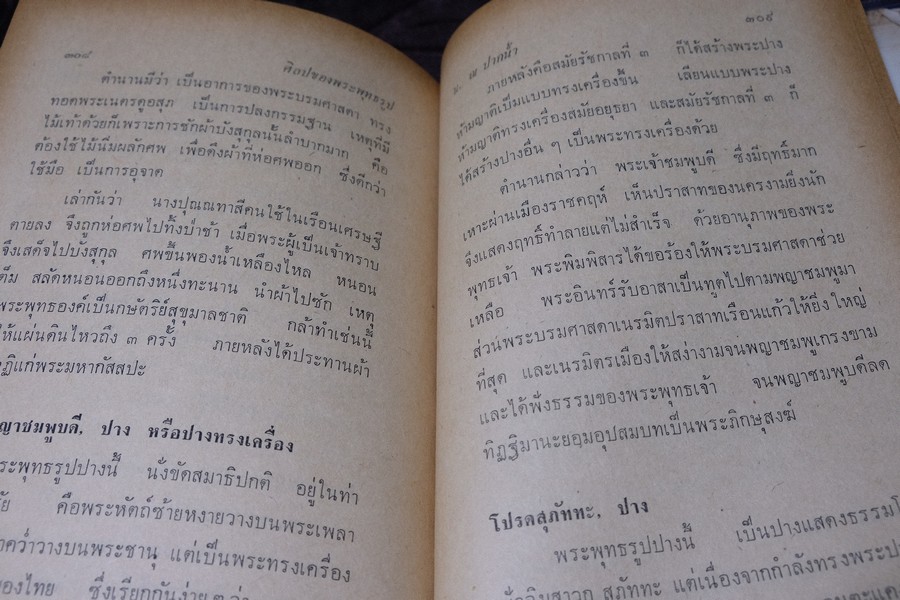 ๓๐๘
ศิลปของพระพุทธรูป
ตำนานมีว่า เป็นอาการของพระบรมศาสดา ทรง
ทอดพระเนตรดูอสุภ เป็นการปลงกรรมฐาน เหตุที่มี
ไม้เท้าด้วยก็เพราะการชักผ้าบังสุกุลนั้นลำบากมาก คือ
ต้องใช้ไม้นั้นผลักศพ เพื่อดึงผ้าที่ห่อศพออก ซึ่งดีกว่า
ใช้มือ เป็นการอุจาด
เล่ากันว่า นางปุณณทาสีคนใช้ในเรือนเศรษฐี
ตายลง จึงถูกห่อศพไปทิ้งป่าช้า เมื่อพระผู้เป็นเจ้าทราบ
จึงเสด็จไปบังสุกุล ศพขึ้นพองน้ำเหลืองไหล หนอน
เต็ม สลัดหนอนออกถึงหนึ่งทะนาน นำผ้าไปซัก เหตุ
พระพุทธองค์เป็นกษัตริย์สุขุมาลชาติ กล้าทำเช่นนี้
ให้แผ่นดินไหวถึง ๓ ครั้ง ภายหลังได้ประทานผ้า
แก่พระมหากัสสปะ
ญาชมพูบดี, ปาง หรือปางทรงเครื่อง
พระพุทธรูปปางนี้ นั่งขัดสมาธิปกติ อยู่ในท่า
คือพระหัตถ์ซ้ายหงายวางบนพระเพลา
คว่ำวางบนพระชานุ แต่เป็นพระทรงเครื่อง
ของไทย ซึ่งเรียกกันง่าย ๆ ว่า
๓๐๙
น. ณ ปากน้ำ
ภายหลังคือสมัยรัชกาลที่ ๓ ก็ได้สร้างพระปาง
ห้ามญาติเป็นแบบทรงเครื่องขึ้น เลียนแบบพระปาง
ห้ามญาติทรงเครื่องสมัยอยุธยา และสมัยรัชกาลที่ ๓ ก็
ได้สร้างปางอื่น ๆ เป็นพระทรงเครื่องด้วย
ตำนานกล่าวว่า พระเจ้าชมพูบดี ซึ่งมีฤทธิ์มาก
เหาะผ่านเมืองราชคฤห์ เห็นปราสาทของนครงามยิ่งนัก
จึงแสดงฤทธิ์ทำลายแต่ไม่สำเร็จ ด้วยอานุภาพของพระ
พุทธเจ้า พระพิมพิสารได้ขอร้องให้พระบรมศาสดาช่วย
เหลือ พระอินทร์รับอาสาเป็นทูตไปตามพญาชมพูมา
ส่วนพระบรมศาสดาเนรมิตปราสาทเรือนแก้วให้ยิ่งใหญ่
ที่สุด และเนรมิตรเมืองให้สง่างามจนพญาชมพูเกรงขาม
และได้ฟังธรรมของพระพุทธเจ้า จนพญาชมพูบดีลด
ทิฏฐิมานะยอมอุปสมบทเป็นพระภิกษุสงฆ์
โปรดสุภัททะ, ปาง
พระพุทธรูปปางนี้ เป็นปางแสดงธรรมโ
สุภัททะ แต่เนื่องจากกำลังทรงพระป